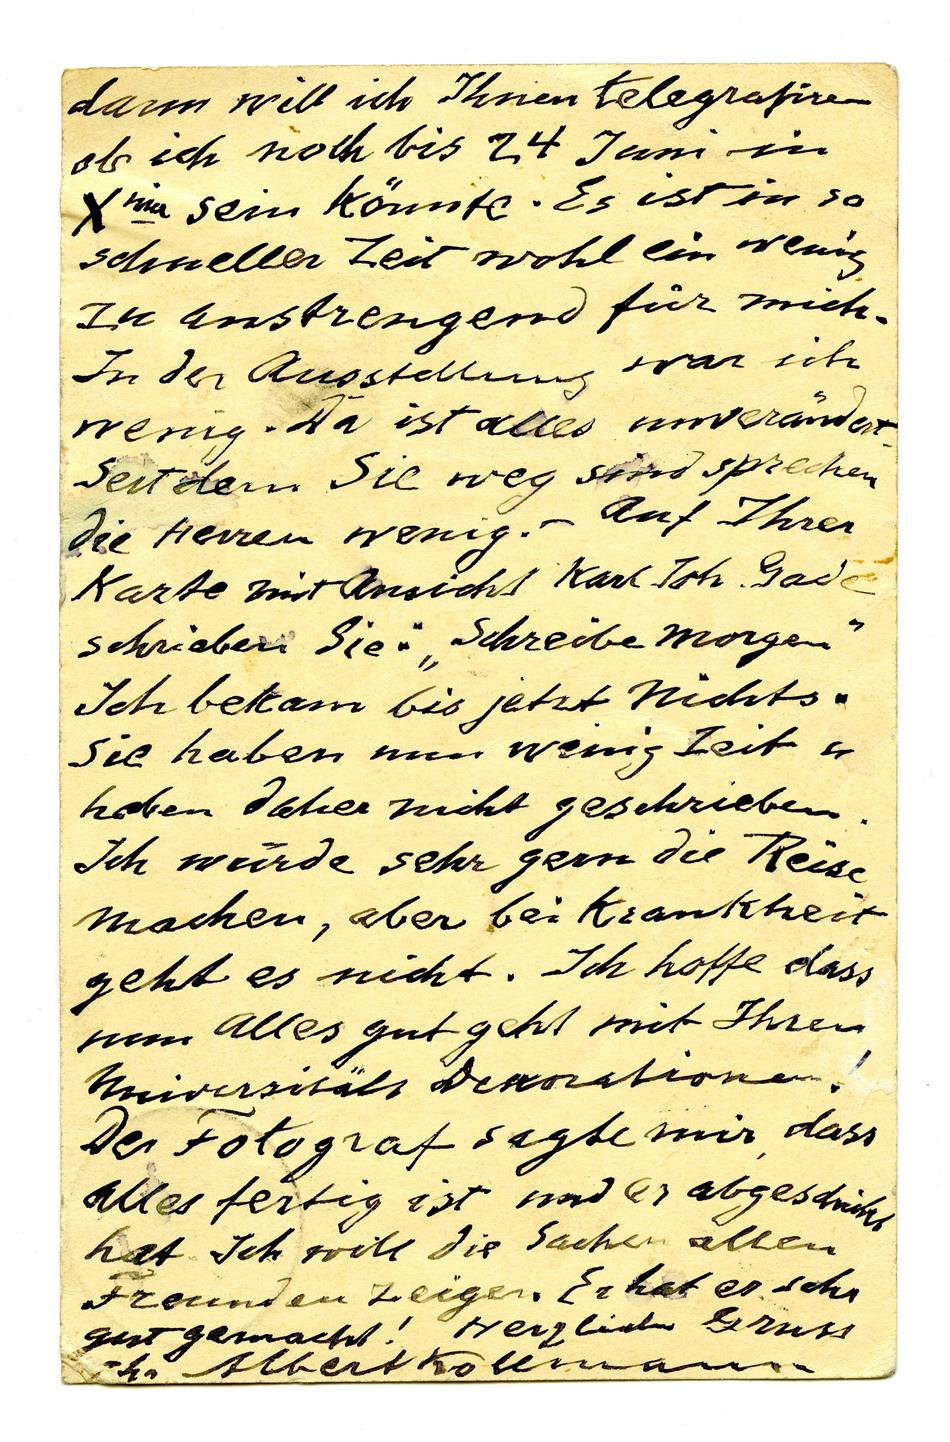 dann will ich Ihnen telegrafiren
ob ich noch bis 24 Juni in
Xnia sein könnte. Es ist in so
schneller Zeit wohl ein wenig
zu anstrengend für mich.
In der Ausstellung war ich
wenig. Da ist alles unverändert.
Seitdem Sie weg sind sprechen
die Herren wenig. – Auf Ihrer
Karte mit Ansicht Karl Joh Gade
schrieben Sie: „Schreibe morgen"
Ich bekam bis jetzt Nichts.
Sie haben nun wenig Zeit u
haben daher nicht geschrieben.
Ich würde sehr gern die Reise
machen, aber bei Krankheit
geht es nicht. Ich hoffe dass
nun Alles gut geht mit Ihren
Universitäts Dekorationen!
Der Fotograf sagte mir, dass
alles fertig ist und er abgeschickt
hat Ich will die Sachen allen
Freunden zeigen. Er hat es sehr
gut gemacht! Herzlichen Gruss
Ihr Albert Kollmann